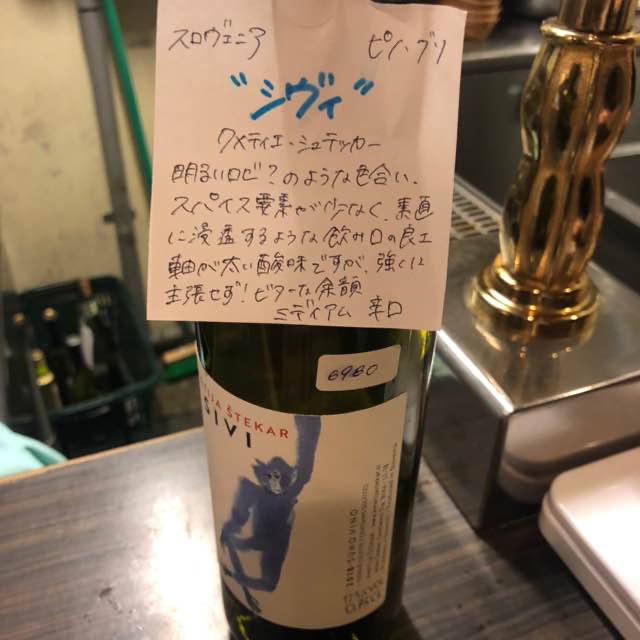 スロヴェニア ピノ・グリ
"シヴィ"
クメティエ・シュテッカー
明るいロゼ?のような色合い、
スパイス要素が少なく、素直
に浸透するような飲み口の良さ
軸が太い酸味ですが、強くは
主張せず!ビターな余韻
ミディアム 辛口
6960
IJA ŠTEKAR
SIVI